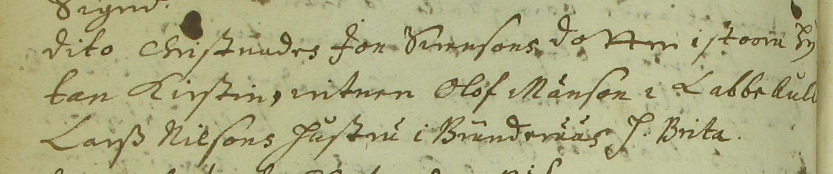 Signd.
dito Christnades Jon Svensons dotter i stoora Hy
tan Kirstin, witnen Olof Månson i Labbekull
Larß Nilsons Hustru i Bründerüüs H. Brita.